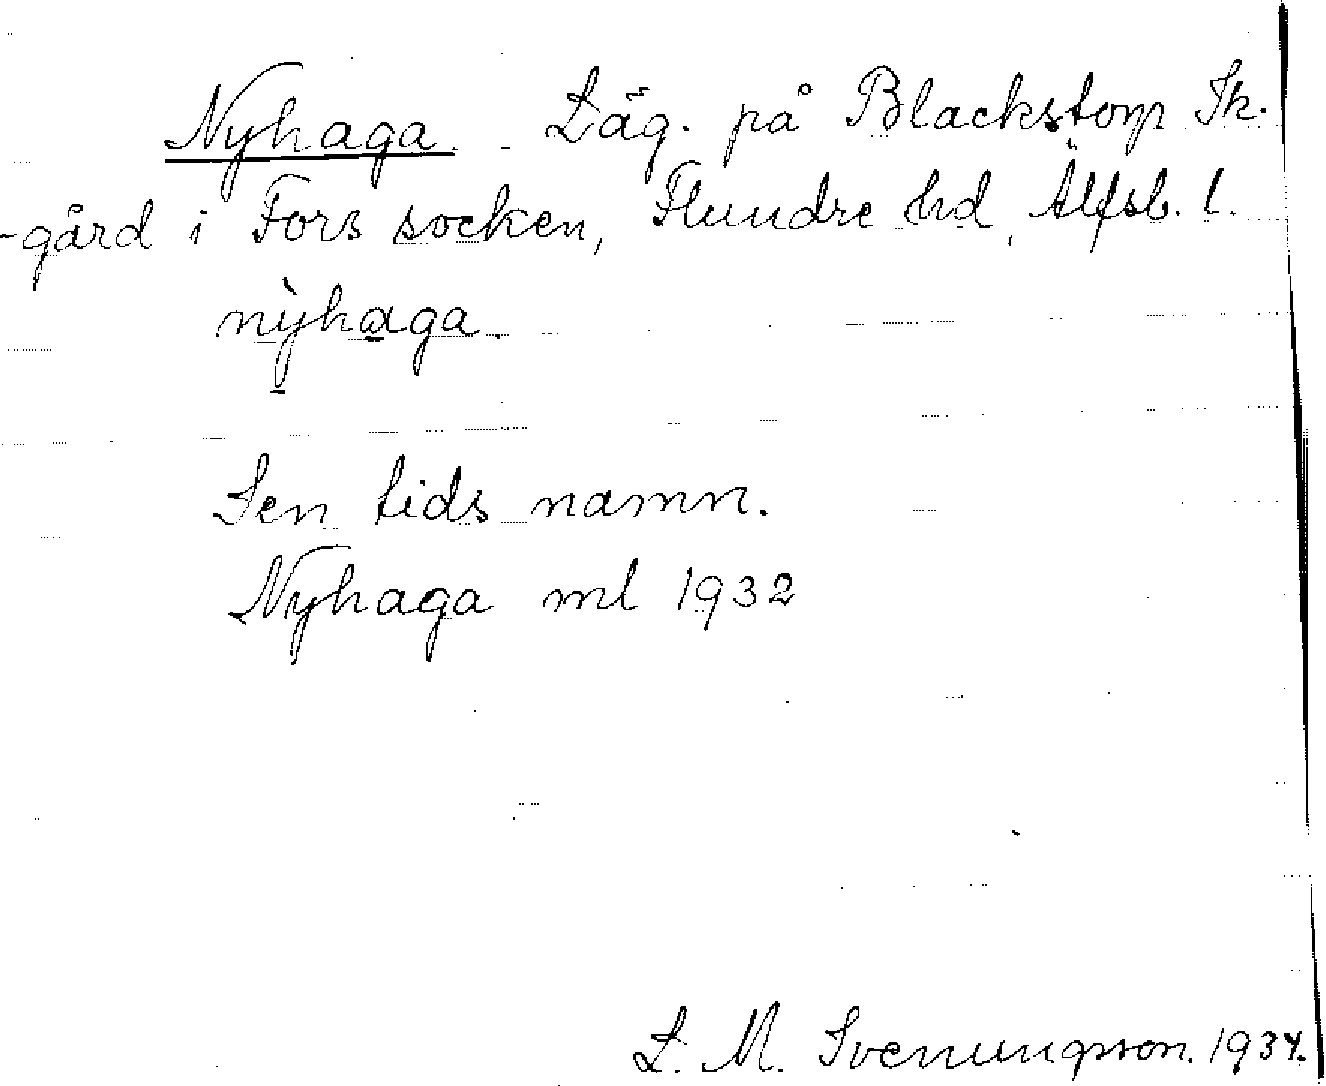 Nyhaga. Läg. på Blackstorp Sk.
-gård i Fors socken, Flundre hd, Älfsb. l.
nỳhaga.
Sen tids namn.
Nyhaga ml 1932
L. M. Svenungsson. 1934.